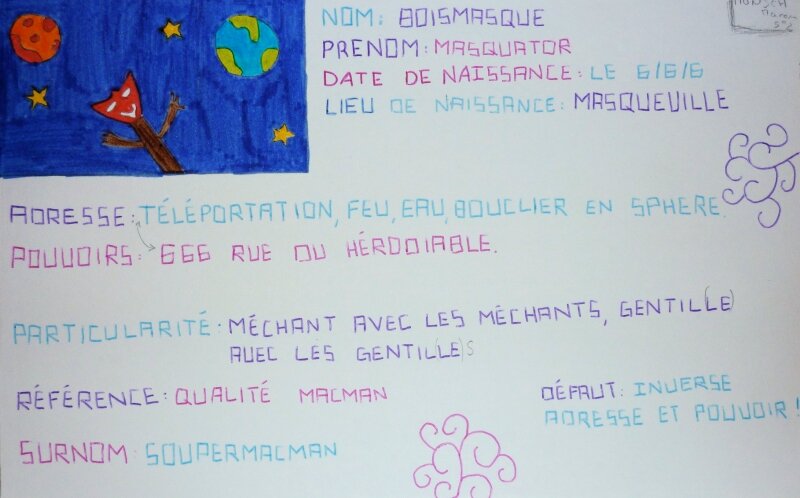 NOM: BOISMASQUE
PRENOM: MASQUATOR
DATE DE NAISSANCE: LE 6/6/6
LIEU DE NAISSANCE: MASQUEVILLE
ADRESSE: TÉLÉPORTATION, FEU, EAU, BOUCLIER EN SPHERE.
POUVOIRS: 666 RUE DU HÉRDOIABLE.
PARTICULARITÉ: MÉCHANT AVEC LES MÉCHANTS, GENTIL(LE)
AVEC LES GENTIL(LE)S
RÉFÉRENCE: QUALITÉ MACMAN
DÉFAUT: INVERSE
ADRESSE ET POUVOIR !
SURNOM: SOUPERMACMAN